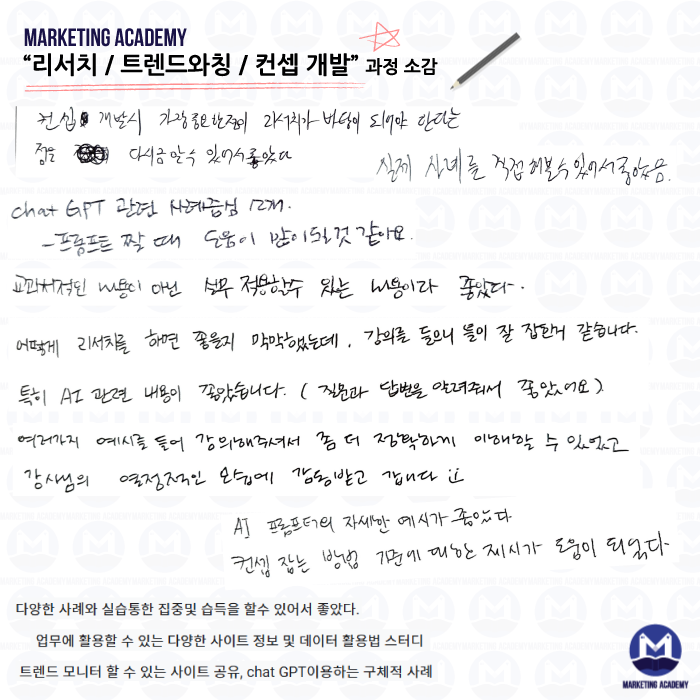 MARKETING ACADEMY
“리서치 / 트렌드와칭 / 컨셉 개발” 과정 소감
컨셉 개발시 가장 중요한점이 리서치가 바탕이 되어야 한다는
점을 다시금 알 수 있어서 좋았다
실제 사례를 직접 해볼 수 있어서 좋았음.
chat GPT 관련 사례중심 소개.
- 프롬프트 짤 때 도움이 많이 될것 같아요.
교과서적인 내용이 아닌 실무 적용할수 있는 내용이라 좋았다.
어떻게 리서치를 하면 좋을지 막막했는데, 강의를 들으니 틀이 잘 잡힌거 같습니다.
특히 AI 관련 내용이 좋았습니다. (질문과 답변을 알려줘서 좋았어요)
여러가지 예시를 들어 강의해주셔서 좀 더 정확하게 이해할 수 있었고
강사님의 열정적인 모습에 감동받고 갑니다
AI 프롬프트의 자세한 예시가 좋았다
컨셉 잡는 방법 기준에 대한 제시가 도움이 되었다
다양한 사례와 실습통한 집중및 습득을 할수 있어서 좋았다.
업무에 활용할 수 있는 다양한 사이트 정보 및 데이터 활용법 스터디
트렌드 모니터 할 수 있는 사이트 공유, chat GPT이용하는 구체적 사례
MARKETING ACADEMY